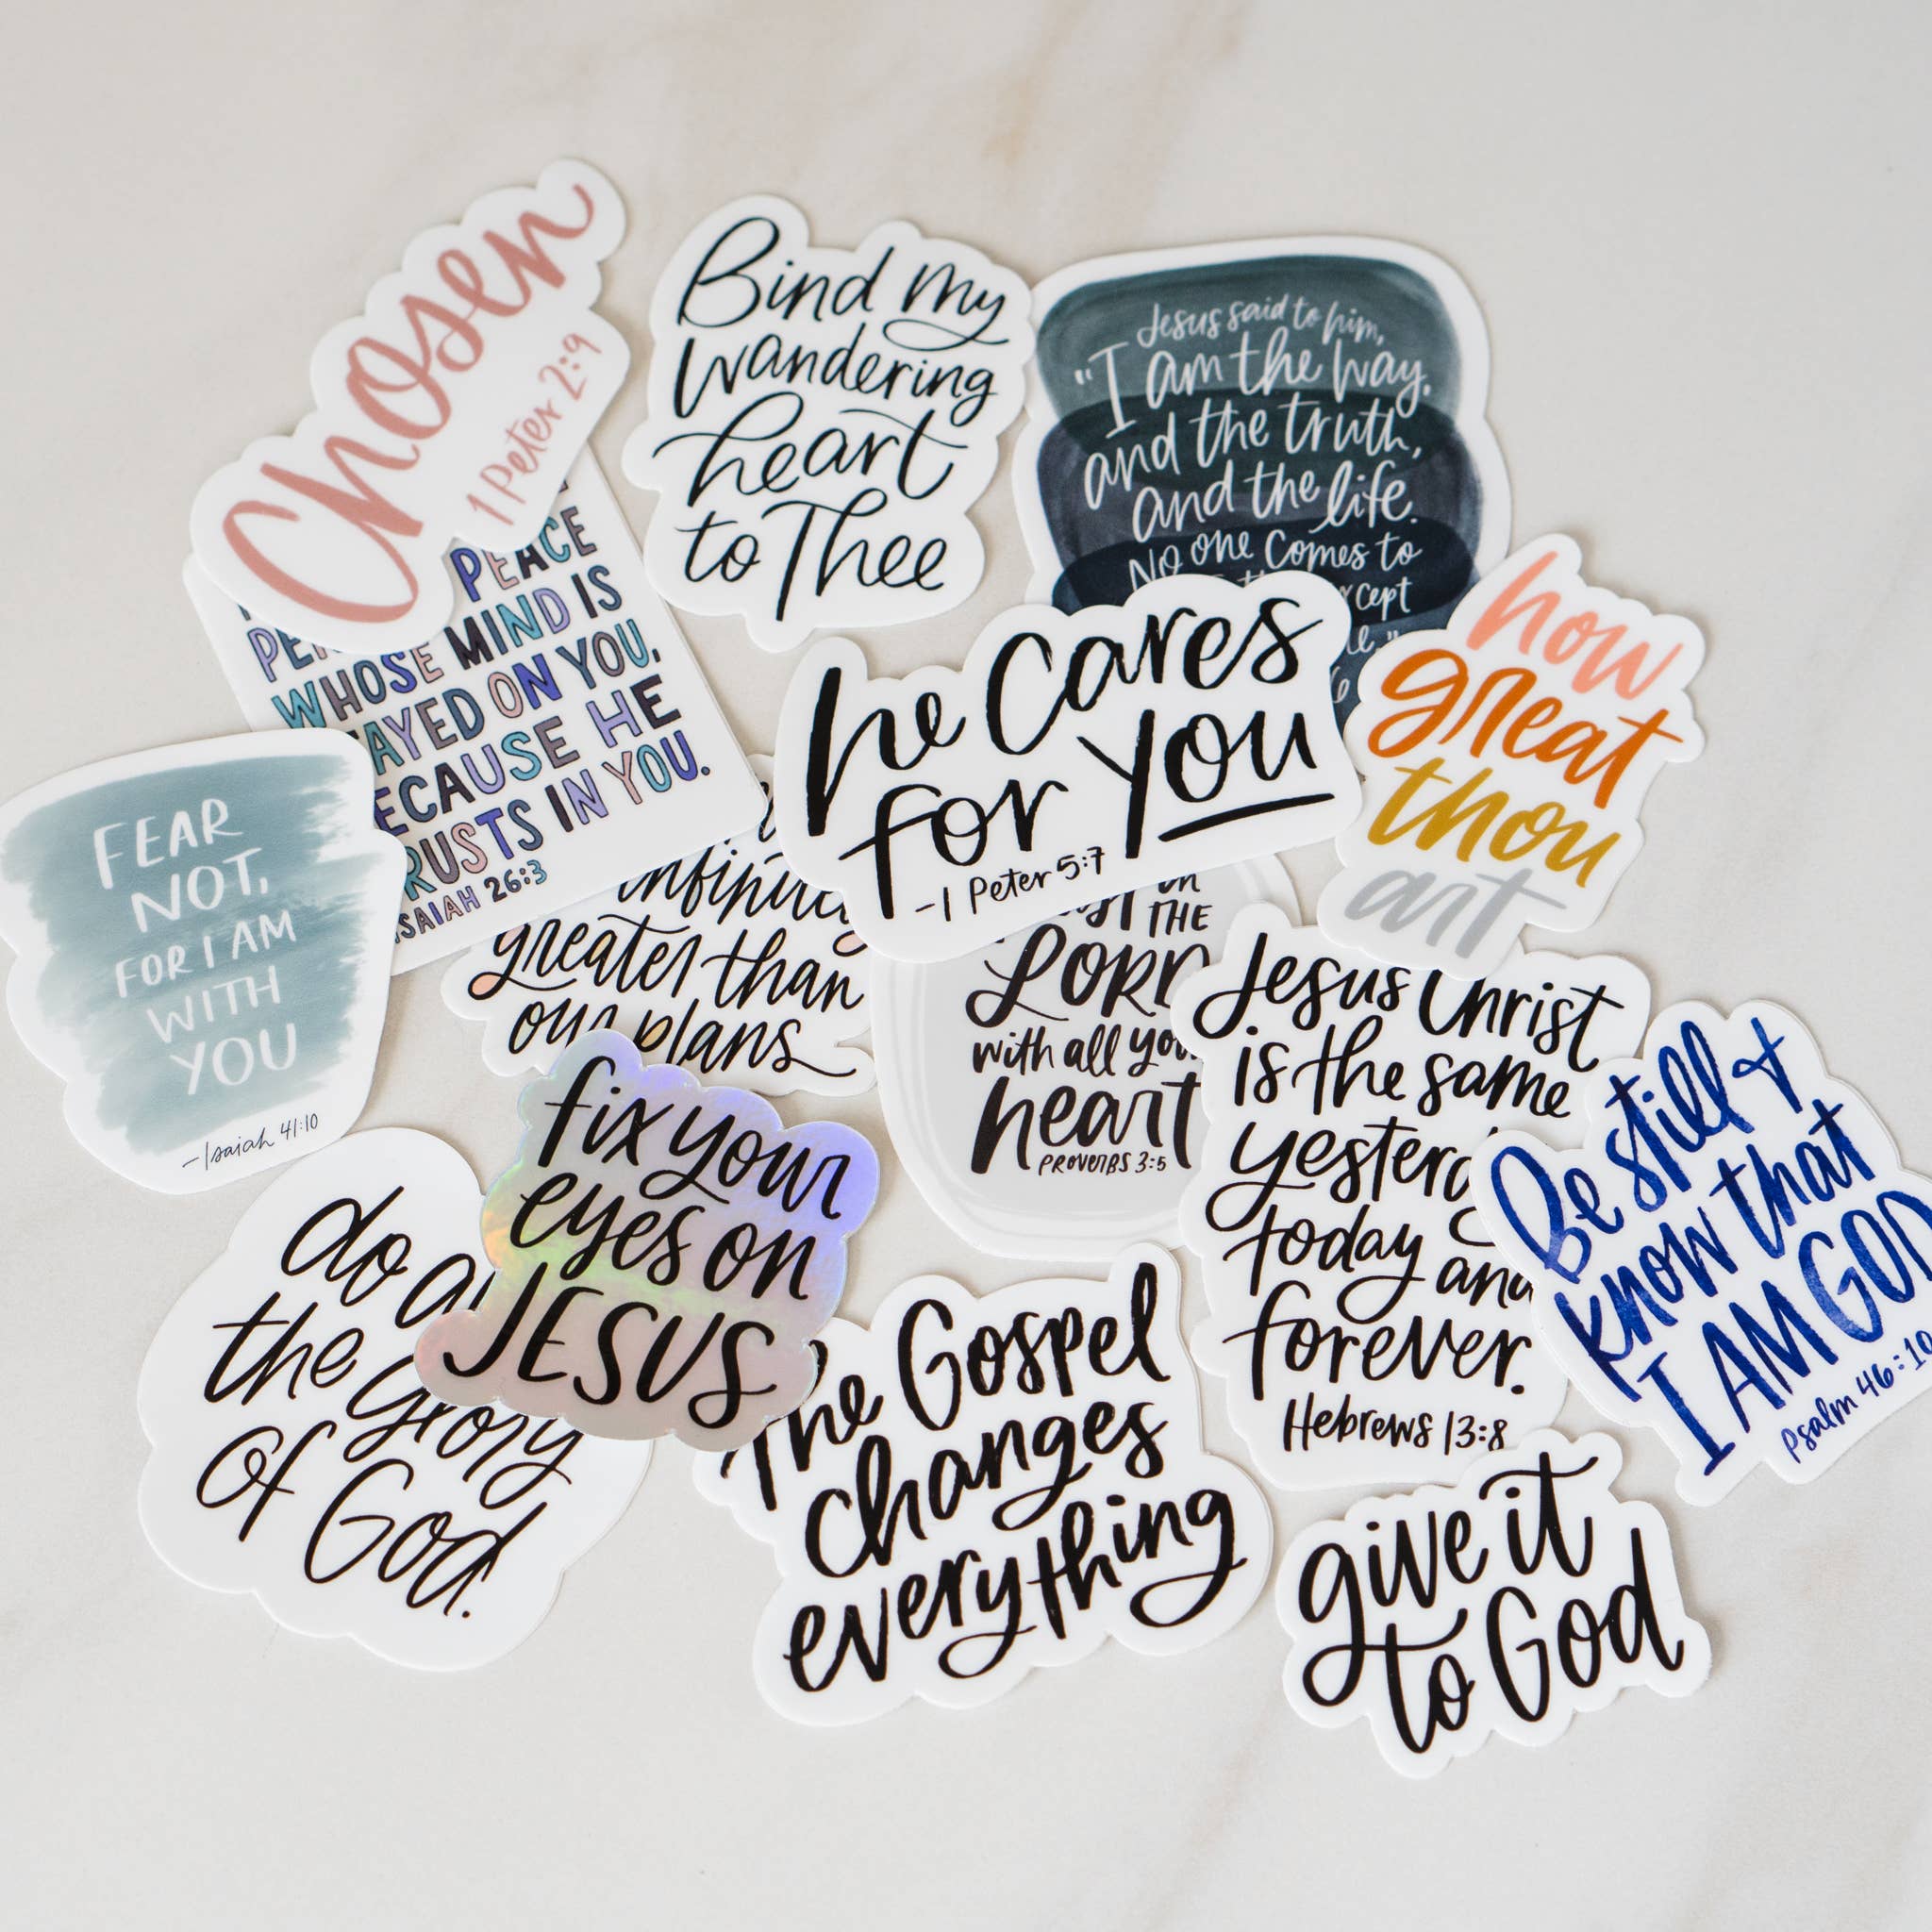 Chosen
1 Peter 2:9
Bind my
wandering
heart
to Thee
Jesus said to him,
"I am the way,
and the truth,
and the life.
No one comes to
PEACE
WHOSE MIND IS
ON YOU,
HE
IN YOU.
ISAIAH 26:3
he cares
for you
-1 Peter 5:7
how
great
thou
art
FEAR
NOT,
FOR I AM
WITH
YOU
-Isaiah 41:10
greater than
our plans
THE
LORD
with all
heart
PROVERBS 3:5
Jesus Christ
is the same
today and
forever.
Hebrews 13:8
Be still &
know that
I AM GOD
Psalm 46:10
fix your
eyes on
JESUS
do
the glory
of God.
The Gospel
changes
everything
give it
to God